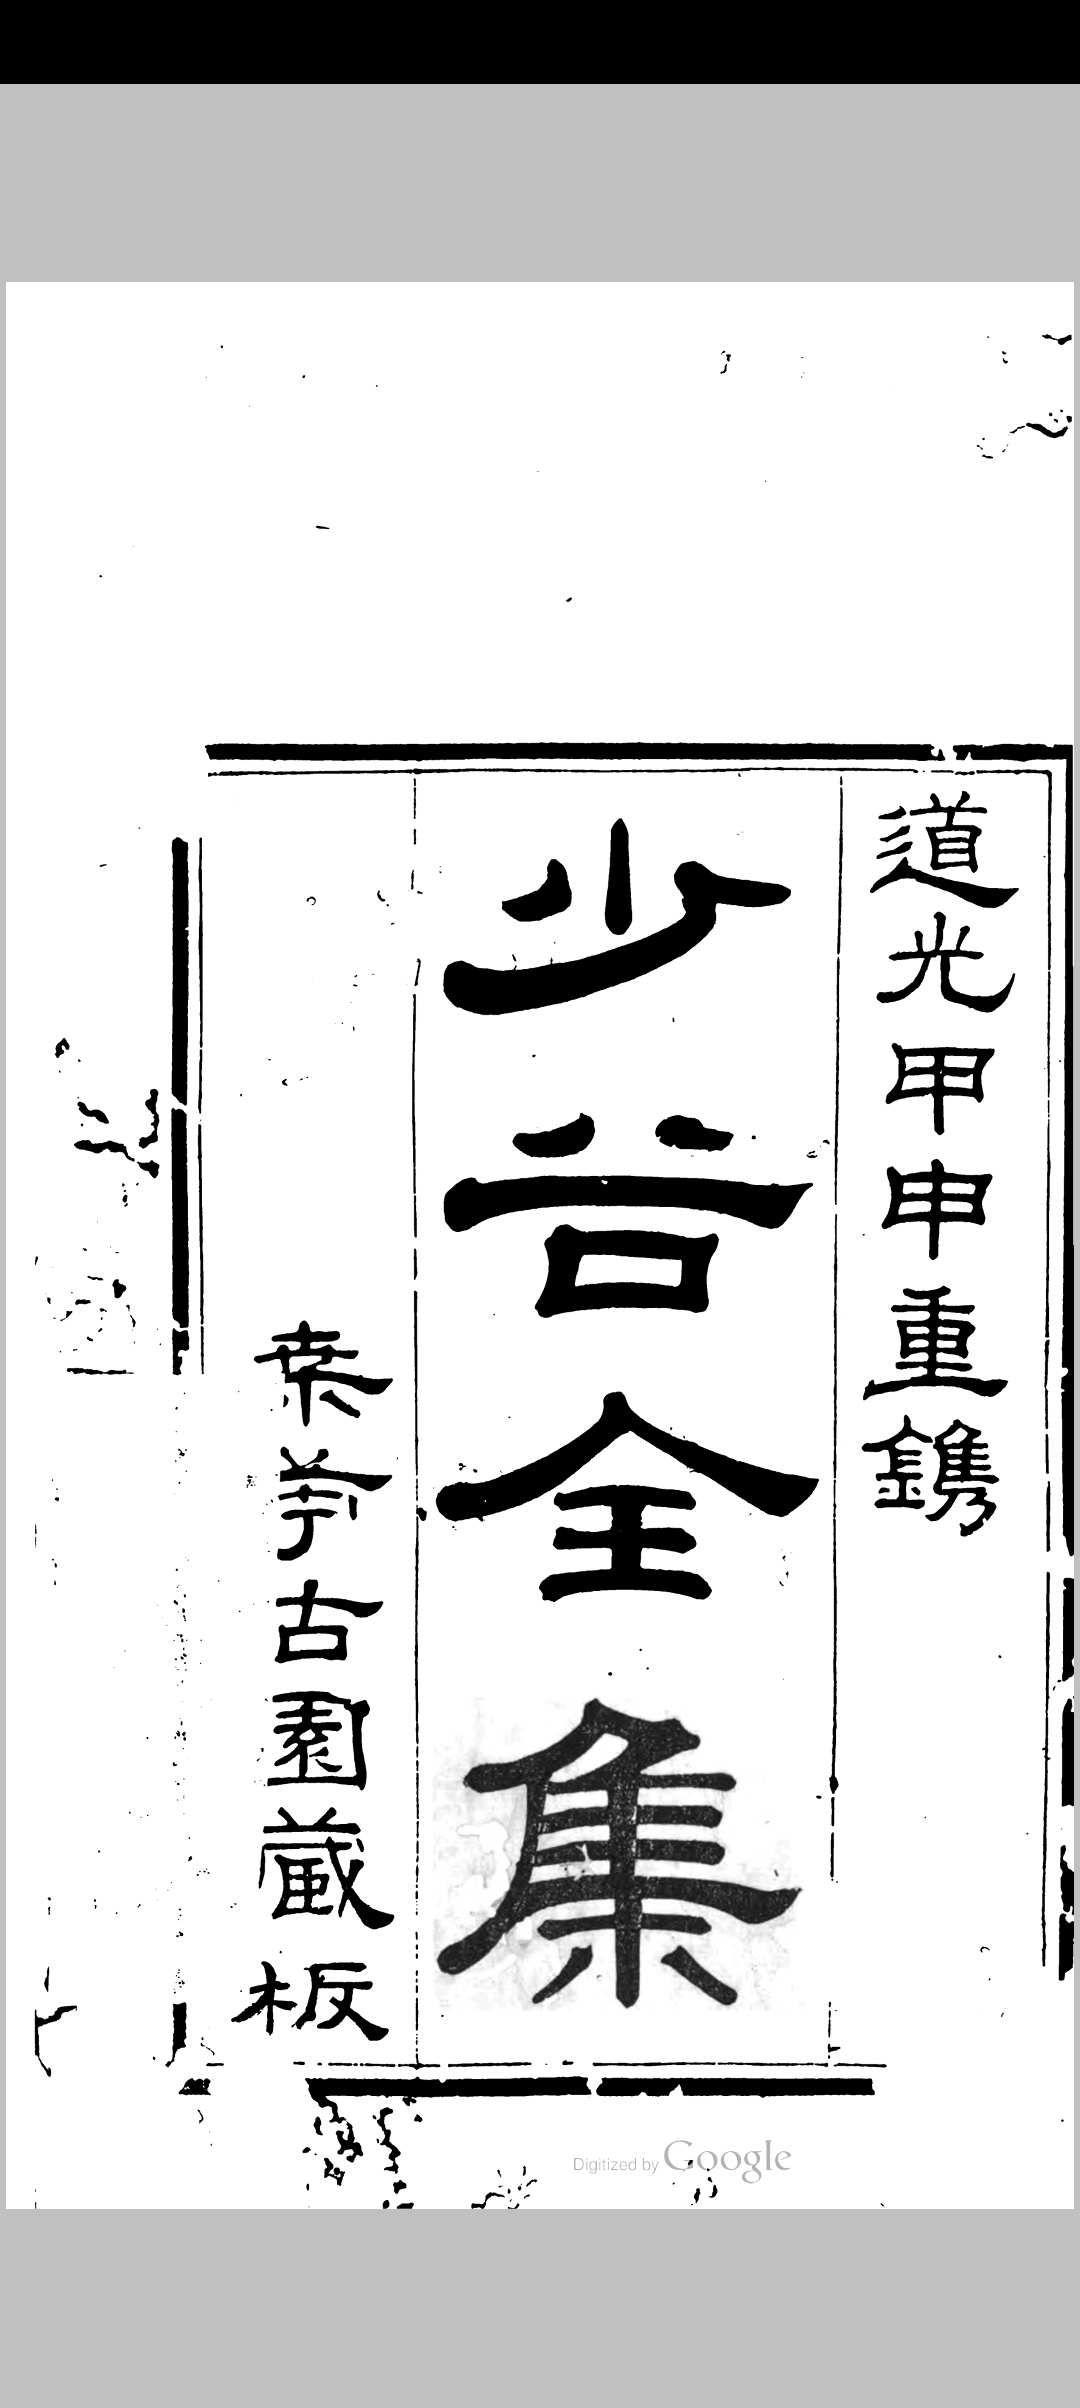 道光甲申重鐫
少谷全集
桒苧古園藏板
Digitized by Google